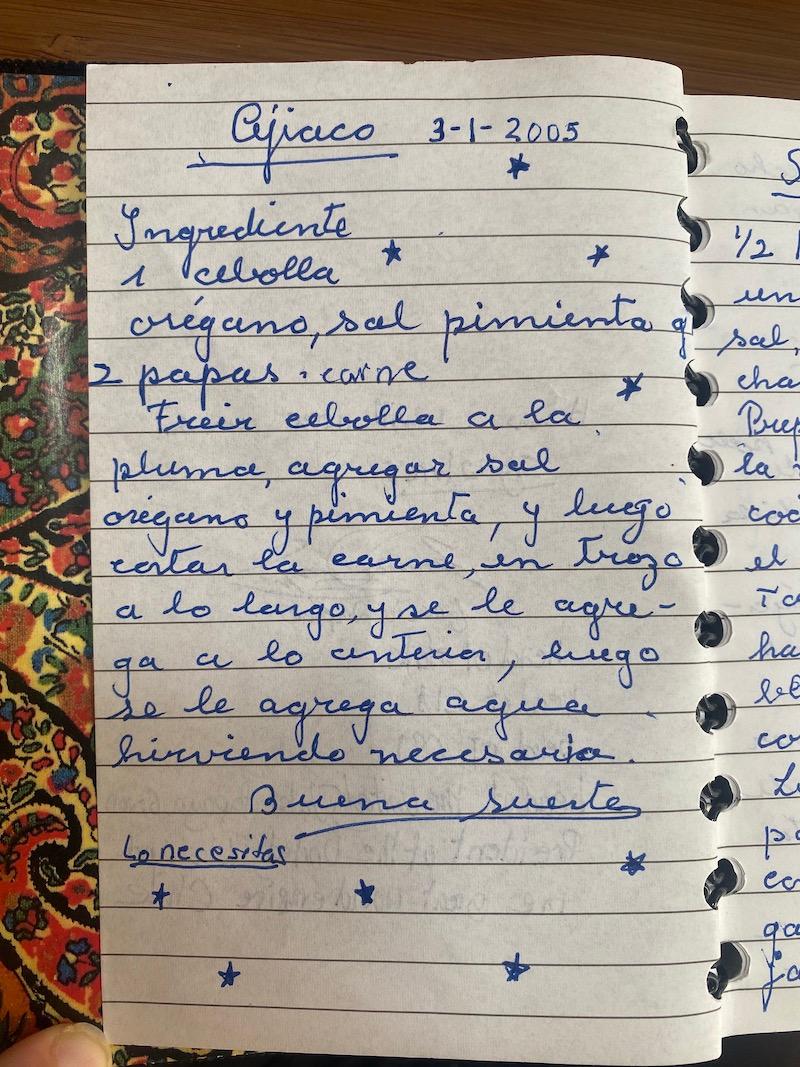 Ajiaco 3-1-2005
Ingrediente
1 cebolla
orégano, sal pimienta
2 papas. carne
Freir cebolla a la
pluma, agregar sal
orégano y pimienta, y luego
cortar la carne, en trozo
a lo largo, y se le agre-
ga a lo anterior, luego
se le agrega agua
hirviendo necesaria.
Buena suerte
Lo necesitas
1/2
un
sal,
cha
Prep
la
coc
el
Ta
ha
co
Lu
po
co
ga